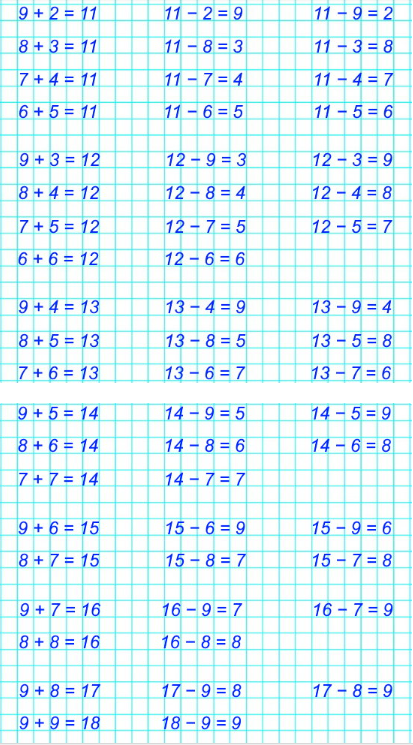 9 + 2 = 11 11 − 2 = 9 11 − 9 = 2
8 + 3 = 11 11 − 8 = 3 11 − 3 = 8
7 + 4 = 11 11 − 7 = 4 11 − 4 = 7
6 + 5 = 11 11 − 6 = 5 11 − 5 = 6
9 + 3 = 12 12 − 9 = 3 12 − 3 = 9
8 + 4 = 12 12 − 8 = 4 12 − 4 = 8
7 + 5 = 12 12 − 7 = 5 12 − 5 = 7
6 + 6 = 12 12 − 6 = 6
9 + 4 = 13 13 − 4 = 9 13 − 9 = 4
8 + 5 = 13 13 − 8 = 5 13 − 5 = 8
7 + 6 = 13 13 − 6 = 7 13 − 7 = 6
9 + 5 = 14 14 − 9 = 5 14 − 5 = 9
8 + 6 = 14 14 − 8 = 6 14 − 6 = 8
7 + 7 = 14 14 − 7 = 7
9 + 6 = 15 15 − 6 = 9 15 − 9 = 6
8 + 7 = 15 15 − 8 = 7 15 − 7 = 8
9 + 7 = 16 16 − 9 = 7 16 − 7 = 9
8 + 8 = 16 16 − 8 = 8
9 + 8 = 17 17 − 9 = 8 17 − 8 = 9
9 + 9 = 18 18 − 9 = 9